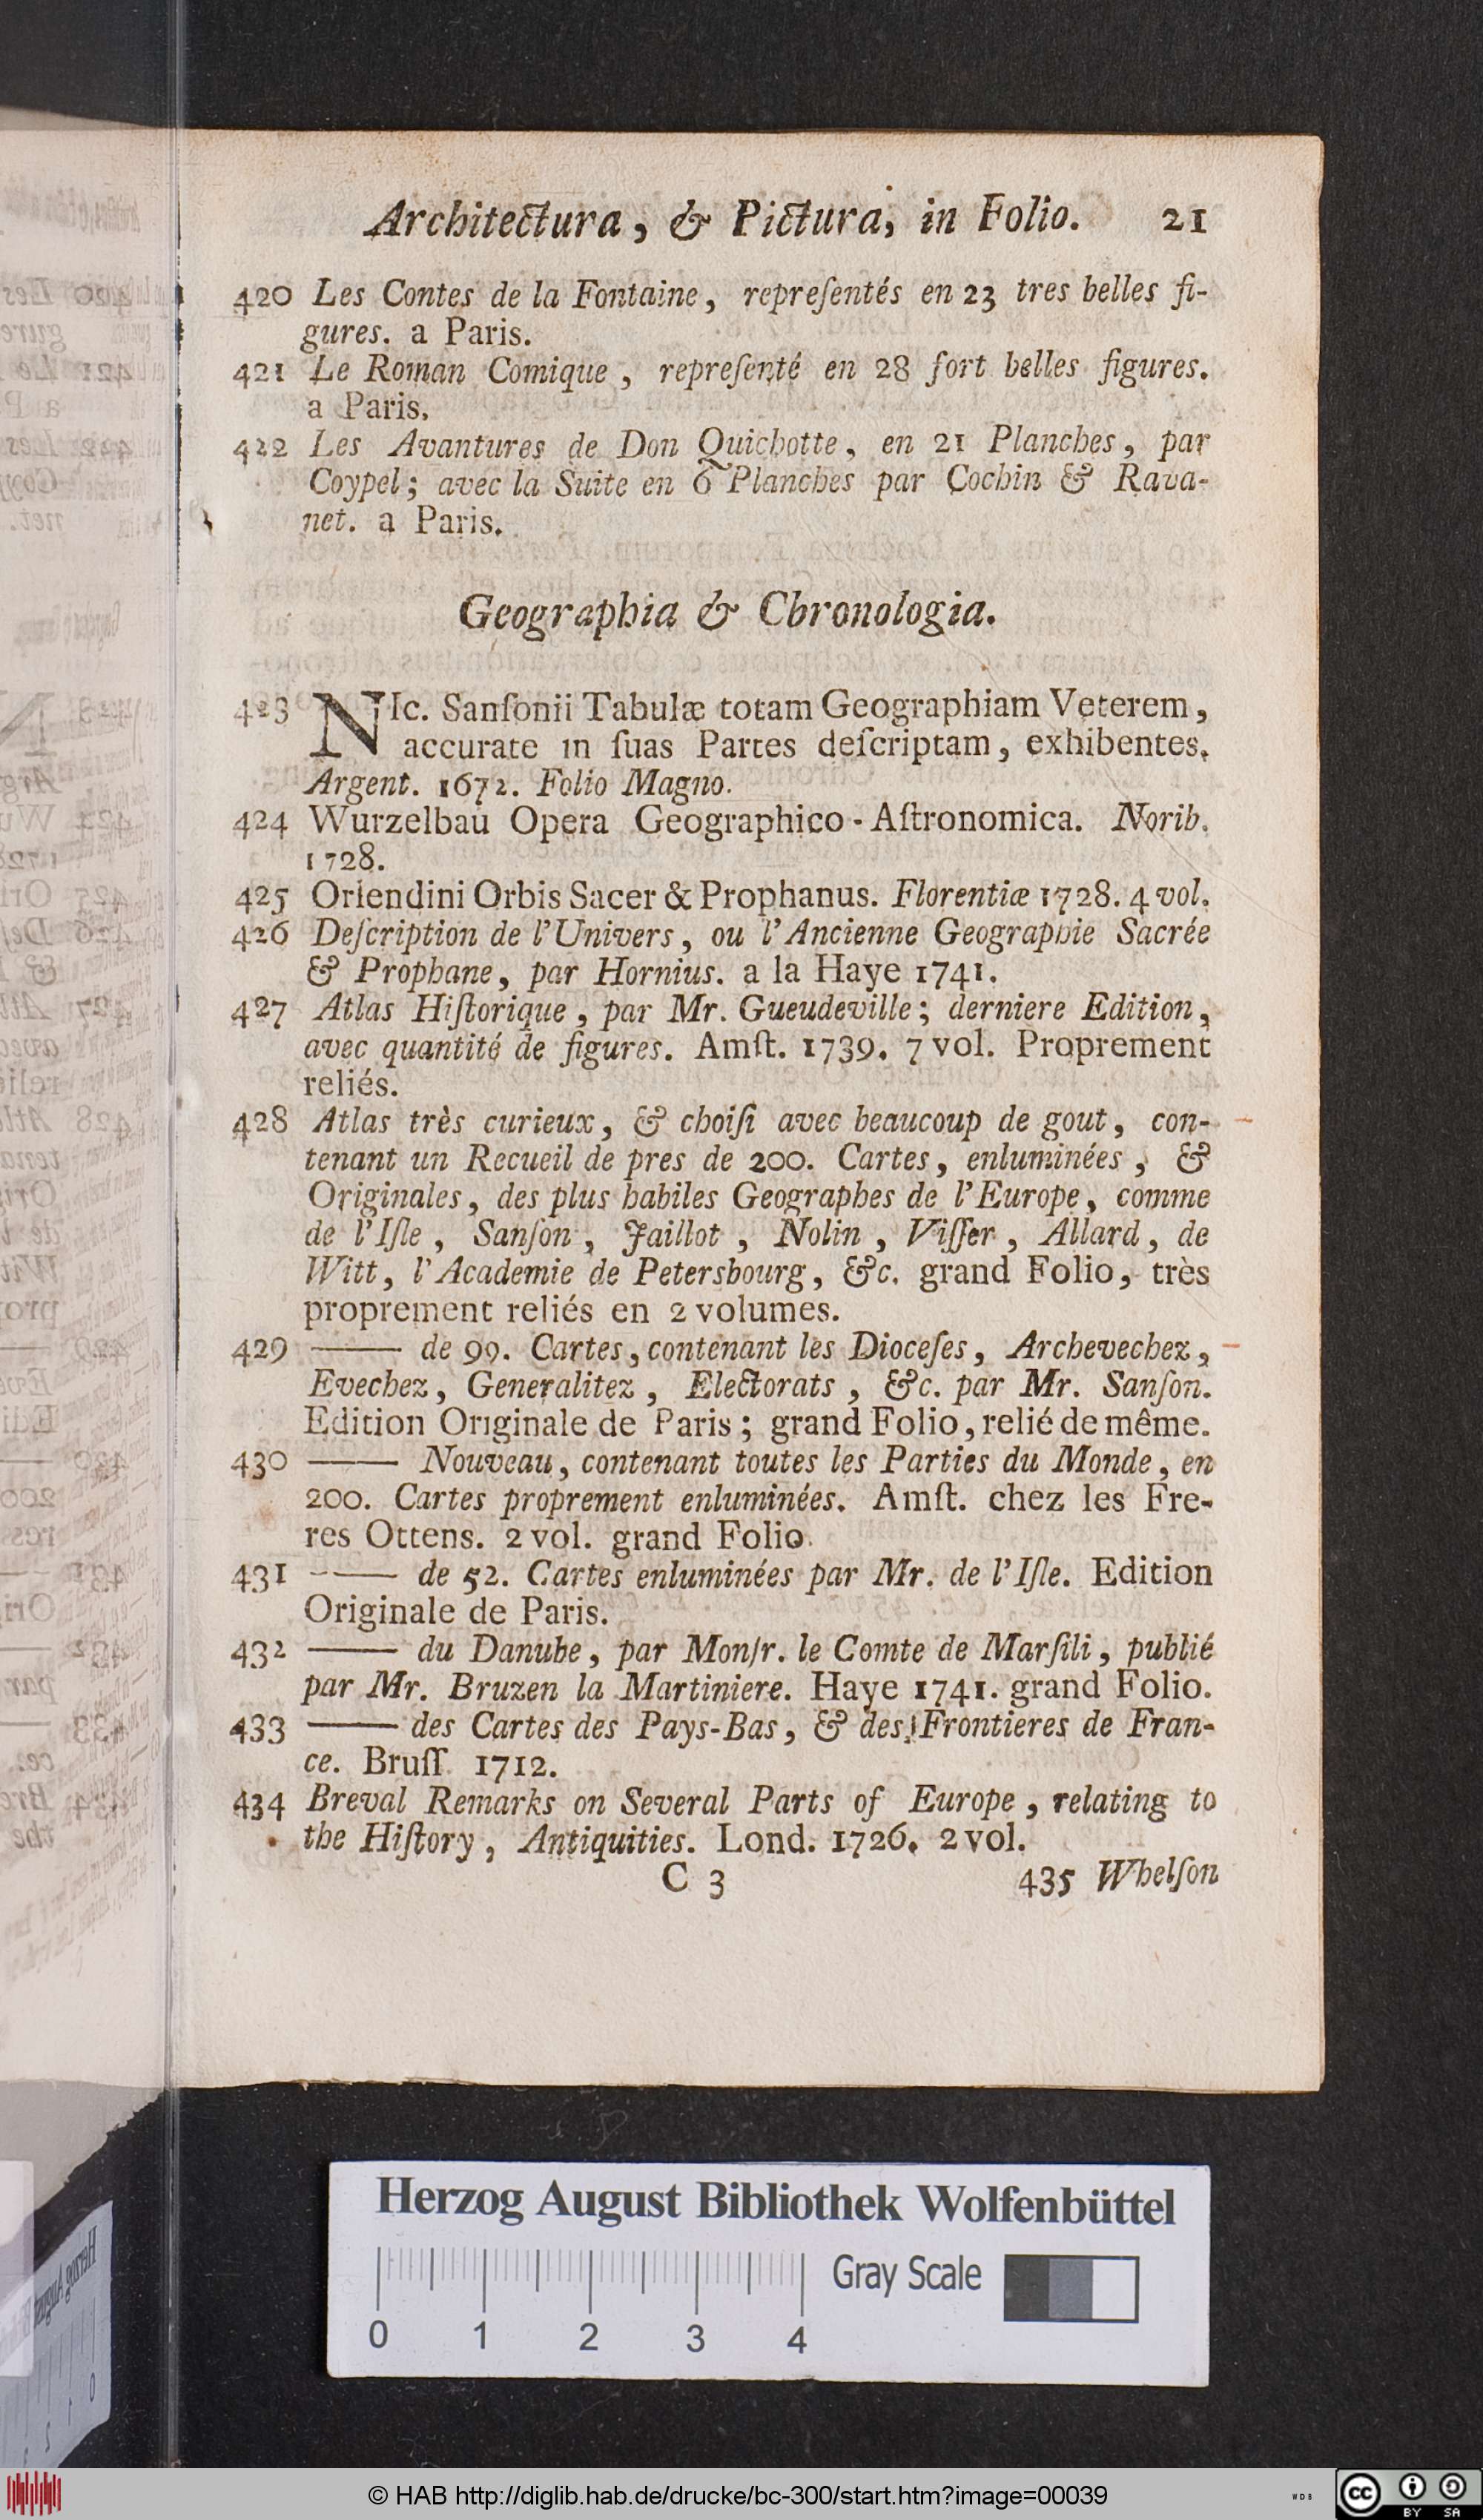 Architectura, & Pictura, in Folio. 21
420 Les Contes de la Fontaine, repreſentés en 23 tres belles fi-
gures. a Paris.
421 Le Roman Comique, repreſenté en 28 fort belles figures.
a Paris.
422 Les Avantures de Don Quichotte, en 21 Planches, par
Coypel; avec la Suite en 6 Planches par Cochin & Rava-
net. a Paris.
Geographia & Chronologia.
423 NIc. Sanſonii Tabulæ totam Geographiam Veterem,
accurate in ſuas Partes deſcriptam, exhibentes.
Argent. 1672. Folio Magno.
424 Wurzelbau Opera Geographico-Aſtronomica. Norib.
1728.
425 Orlendini Orbis Sacer & Prophanus. Florentiæ 1728. 4 vol.
426 Deſcription de l'Univers, ou l'Ancienne Geographie Sacrée
& Prophane, par Hornius. a la Haye 1741.
427 Atlas Hiſtorique, par Mr. Gueudeville; derniere Edition,
avec quantité de figures. Amſt. 1739. 7 vol. Proprement
reliés.
428 Atlas très curieux, & choiſi avec beaucoup de gout, con-
tenant un Recueil de pres de 200. Cartes, enluminées, &
Originales, des plus habiles Geographes de l'Europe, comme
de l'Iſle, Sanſon, Jaillot, Nolin, Viſſer, Allard, de
Witt, l'Academie de Petersbourg, &c. grand Folio, très
proprement reliés en 2 volumes.
429 —— de 99. Cartes, contenant les Dioceſes, Archevechez,
Evechez, Generalitez, Electorats, &c. par Mr. Sanſon.
Edition Originale de Paris; grand Folio, relié de même.
430 —— Nouveau, contenant toutes les Parties du Monde, en
200. Cartes proprement enluminées. Amſt. chez les Fre-
res Ottens. 2 vol. grand Folio.
431 —— de 52. Cartes enluminées par Mr. de l'Iſle. Edition
Originale de Paris.
432 —— du Danube, par Monſr. le Comte de Marſili, publié
par Mr. Bruzen la Martiniere. Haye 1741. grand Folio.
433 —— des Cartes des Pays-Bas, & des Frontieres de Fran-
ce. Bruſſ. 1712.
434 Breval Remarks on Several Parts of Europe, relating to
the Hiſtory, Antiquities. Lond. 1726. 2 vol.
C 3 435 Whelſon
Herzog August Bibliothek Wolfenbüttel
Gray Scale
0 1 2 3 4
© HAB http://diglib.hab.de/drucke/bc-300/start.htm?image=00039
WDB
cc BY SA